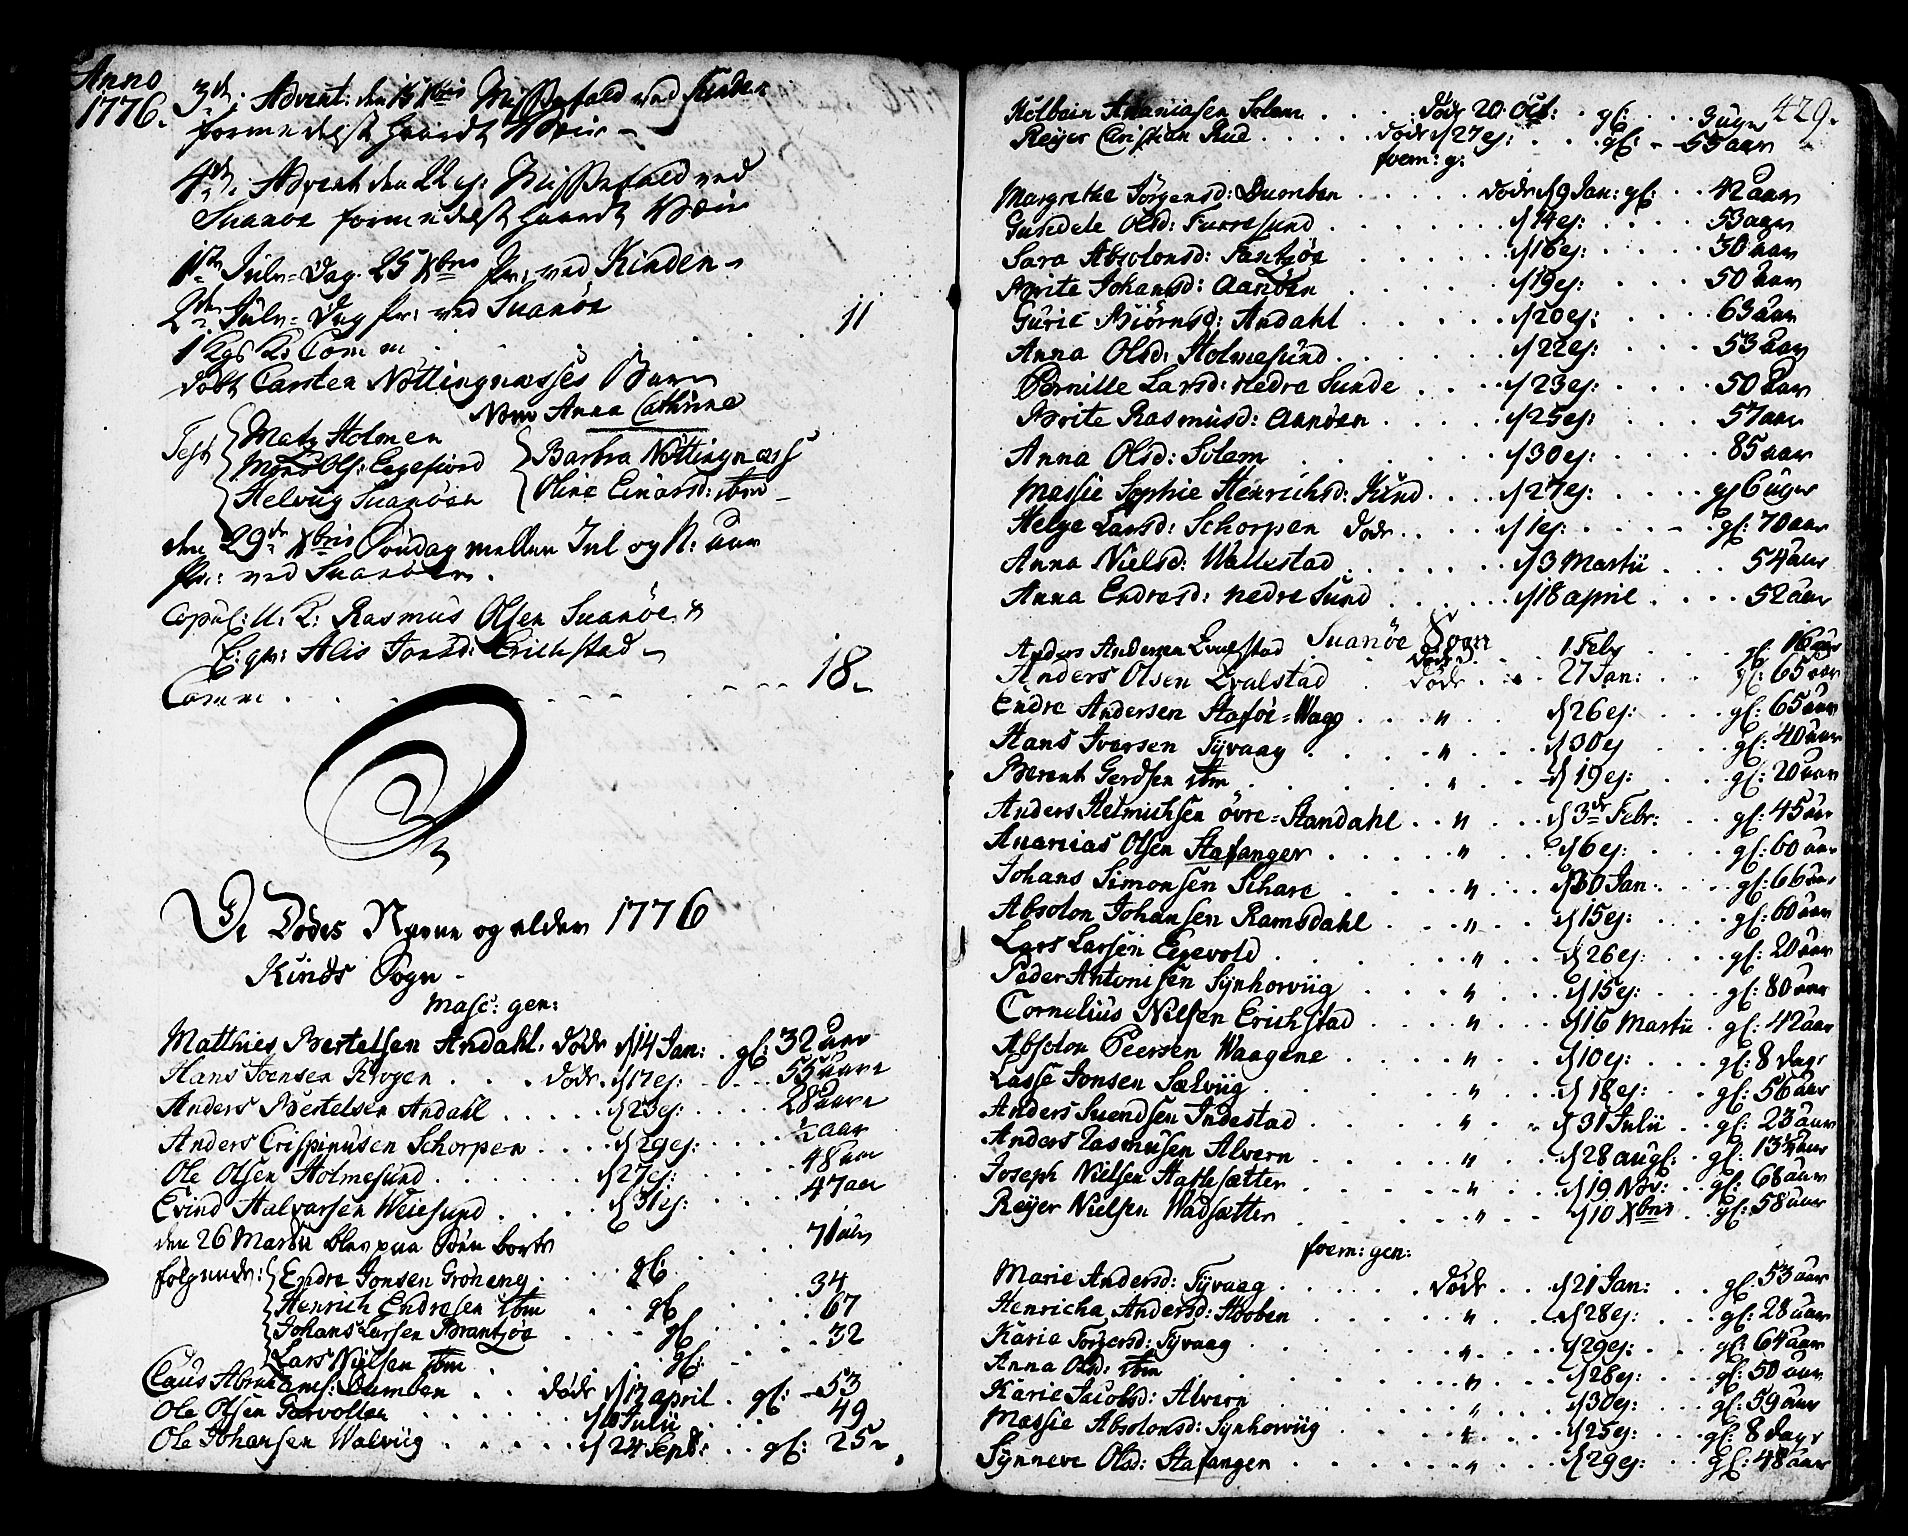 Anno
1776.
3de Advent: den 15 Xbris Messefald ved Kinden
formedelst haardt Væir
4de Advent den 22 ej: Messefald ved
Suanøe formedelst haardt Væir
1ste Jule-Dag 25 Xbris Pr: ved Kinden
2den Jule-Dag pr: ved Suanøe
Comm . . . 11
døbt Carsten Nøttingnæsses Barn
Nom Anna Cathrine
Test Matz Holmen
Mons Ols: Eegefiord
Helvig Suanöen
Barbra Nøttingnæss
Oline Einarsd: ibm
den 29de Xbris Søndag mellem Jul og N: Aar
Pr: ved Suanöen.
Copul: U: K: Rasmus Olsen Suanöe &
E: qv: Alis Jonsd: Erichstad
Comm . . . 18
De Dødes Navne og alder 1776
Kinds Sogn
Masc: gen:
Matthies Bertelsen Andahl. døde d 14 Jan: gl: 32 aar
Hans Joensen Krogen . . . døde d 17 ej: . . 55 aar
Anders Bertelsen Andahl . . . d 23 ej: . . 28 aar
Anders Crispinusen Schorpen . . . d 29 ej: . . ½ aar
Ole Olsen Holmesund . . . d 27 ej: . . 48 aar
Evind Halvorsen Weiesund . . . d 31 ej: . . 47 aar
den 26 Martii blev paa Søen borte
følgende: Endre Jonsen Grøneng . . . gl: . . 71 aar
Henrich Endresen ibm . . gl: . . 34
Johans Larsen Brantzöe . . . gl: . . 67
Lars Nielsen ibm . . . gl: . . 32
Claus Abrahams: Dumben . . døde d 17 april . gl: 53
Ole Olsen Gorvollen . . . Julii . . . 49
Ole Johansen Walvüg . . . d 24 Sept: . . gl: 25
429.
Kolbein Ananiasen Solem . . . døde 20 Oct: . gl: . . 3 uger
Reyer Cristian Rud . . . døde d 27 ej: . . gl: 55 aar
foem: g:
Margrethe Jörgensd: Dumben . . . døde d 9 Jan: gl: . . 42 aar
Gundele Olsd: Furresund . . . d 14 ej: . . . 53 aar
Sara Absolonsd: Fantzöe . . . d 16 ej: . . . 30 aar
Brite Johansd: Aanöen . . . d 19 ej: . . . 50 aar
Gurie Biörnsd: Andahl . . . d 20 ej: . . . 63 aar
Anna Olsd: Holmesund . . . d 22 ej: . . . 53 aar
Pernille Larsd: Nedre Sunde . . . d 23 ej: . . . 50 aar
Brite Rasmusd: Aanöen . . . d 25 ej: . . . 57 aar
Anna Olsd: Solem . . . d 30 ej: . . . 85 aar
Massie Sophie Henrichsd: Kind . . . d 27 ej: . . . gl 6 uger
Helge Larsd: Schorpen døde . . d 1 ej: . . . gl: 70 aar
Anna Nielsd: Wallestad . . . d 3 Martii . . . 54 aar
Anna Endresd: Nedre Sund . . . d 18 april . . . 52 aar
Suanöe Sogn
Anders Andersen Qvalstad . . døde . . 1 Febr . . gl: 16 aar
Anders Olsen Qvalstad . . døde . . 27 Jan: . . gl: 65 aar
Endre Andersen Staföe-Waag . . " . . d 26 ej: . . gl: 65 aar
Hans Iversen Tyvaag . . " . . d 30 ej . . gl: 40 aar
Berent Gerdsen ibm . . " . . d 19 ej: . . gl: 20 aar
Anders Helmichsen övre-Standahl . . " . . d 3de Febr: . . gl: 45 aar
Ananias Olsen Stafanger . . " . . d 6 ej: . . gl: 60 aar
Johans Simonsen Schare . . " . . d 30 Jan . . gl: 66 aar
Absolon Johansen Ramsdahl . . " . . d 15 ej: . . gl: 60 aar
Lars Larsen Egevold . . " . . d 26 ej: . . gl: 20 aar
Peder Antonisen Synhorvüg . . " . . d 15 ej: . . gl: 80 aar
Cornelius Nilsen Erichstad . . " . . d 16 Martii . gl: 42 aar
Absolon Peersen Waagene . . " . . d 10 ej: . . gl: 8 dage
Lasse Jonsen Sælvüg . . " . . d 18 ej: . . gl: 56 aar
Anders Suendsen Indestad . . " . . d 31 Julii . . gl: 23 aar
Anders Rasmusen Alvern . . " . . d 28 augs: . . gl: 13½ aar
Joseph Nielsen Hafslesætter . . " . . d 19 Nov: . . gl: 68 aar
Reyer Nielsen Wadsætter . . " . . d 10 Xbris . . gl: 58 aar
foem: gen:
Marie Andersd: Tyvaag . . døde . . d 21 Jan: . . gl: 53 aar
Henricha Andersd: Hooben . . " . . d 28 ej: . . gl: 28 aar
Karie Torgersd: Tyvaag . . " . . d 29 ej: . . gl: 64 aar
Anna Olsd: ibm . . " . . d 28 ej: . . gl: 50 aar
Karie Jacobsd: Alvern . . " . . d 30 ej: . . gl: 59 aar
Massie Absolonsd: Synhorvüg . . " . . d 25 ej: . . gl: 8 dage
Synneve Olsd: Stafangen . . " . . d 29 ej: . . gl: 48 aar